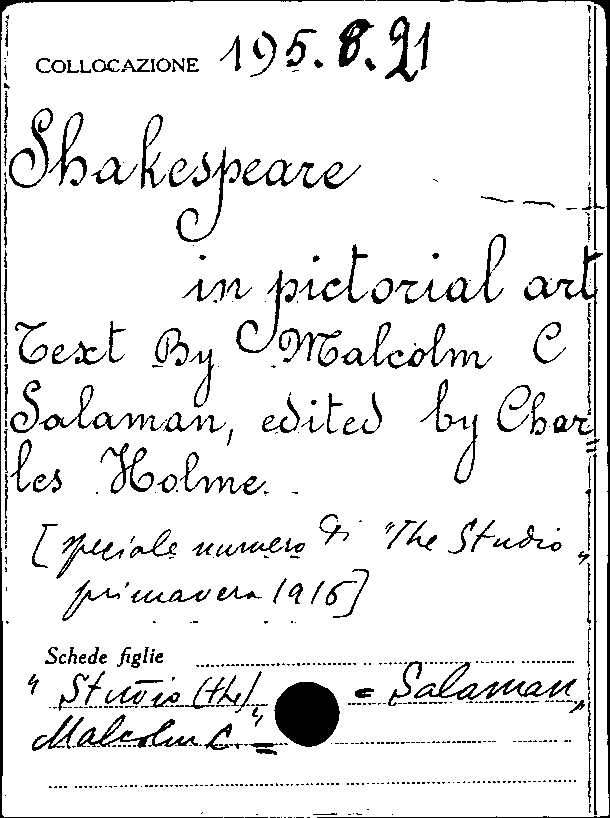 COLLOCAZIONE 195.8.21
Shakespeare
in pictorial art
Text By Malcolm C
Salaman, edited by Char=
les Holme.
[speciale numero di "The Studio"
primavera 1916]
Schede figlie
"Studio (the)" = Salaman,
Malcolm C." =